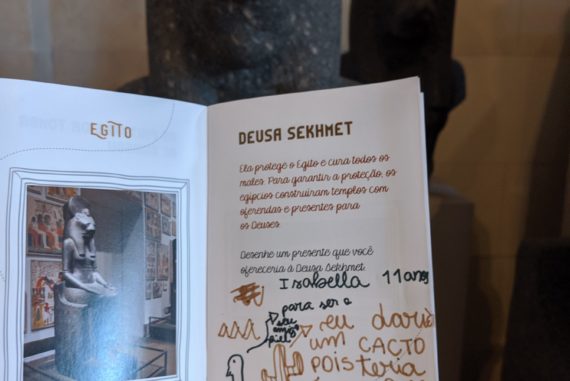 EGITO
DEUSA SEKHMET
Ela protege o Egito e cura todos os
males. Para garantir a proteção, os
egípcios construíram templos com
oferendas e presentes para
os Deuses.
Desenhe um presente que você
ofereceria à Deusa Sekhmet.
Isabella 11 anos
para ser o
seu
amigo
fiel
eu daria
um CACTO
POIS teria